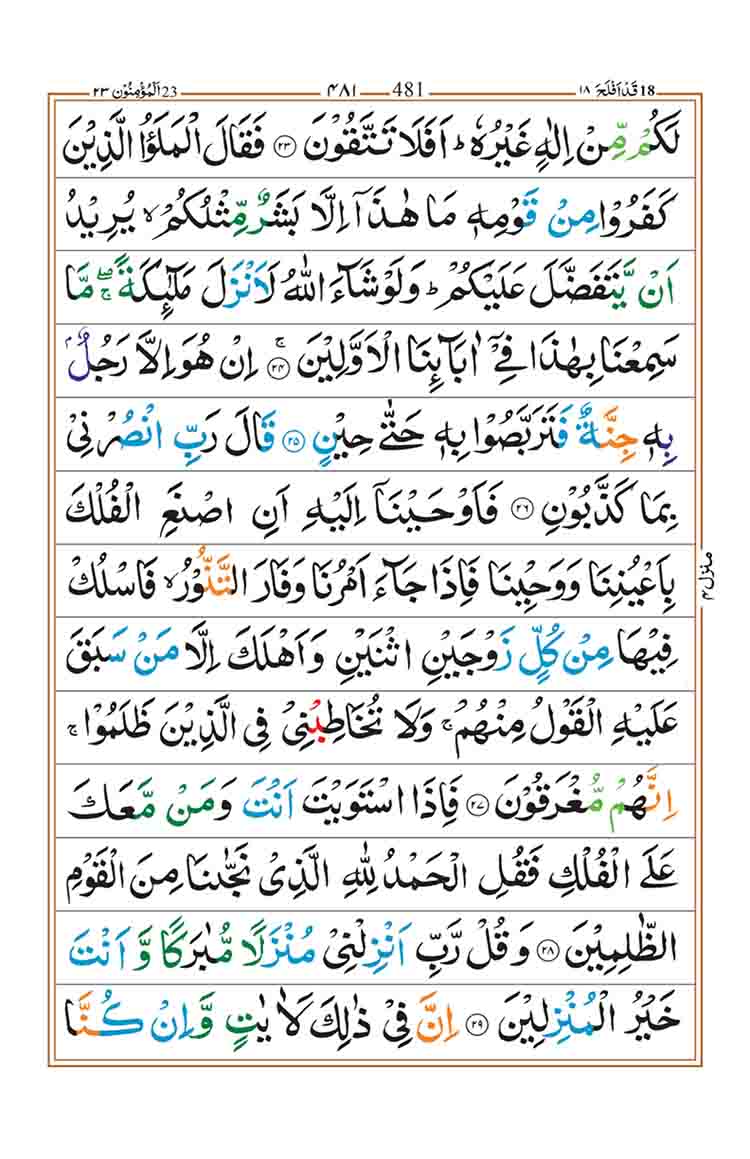 18 قَدْ اَفْلَحَ ١٨ 481 ۴۸۱ 23 اَلْمُؤْمِنُوْن ٢٣
لَكُمْ مِّنْ اِلٰهٍ غَيْرُهٗ ؕ اَفَلَا تَتَّقُوْنَ ۝۲۳ فَقَالَ الْمَلَؤُا الَّذِيْنَ
كَفَرُوْا مِنْ قَوْمِهٖ مَا هٰذَاۤ اِلَّا بَشَرٌ مِّثْلُكُمْ ۙ يُرِيْدُ
اَنْ يَّتَفَضَّلَ عَلَيْكُمْ ؕ وَلَوْ شَآءَ اللّٰهُ لَاَنْزَلَ مَلٰٓئِكَةً ۖۚ مَّا
سَمِعْنَا بِهٰذَا فِيْۤ اٰبَآئِنَا الْاَوَّلِيْنَ ۚ۝۲۴ اِنْ هُوَ اِلَّا رَجُلٌۢ
بِهٖ جِنَّةٌ فَتَرَبَّصُوْا بِهٖ حَتّٰى حِيْنٍ ۝۲۵ قَالَ رَبِّ انْصُرْنِيْ
بِمَا كَذَّبُوْنِ ۝۲۶ فَاَوْحَيْنَاۤ اِلَيْهِ اَنِ اصْنَعِ الْفُلْكَ
بِاَعْيُنِنَا وَوَحْيِنَا فَاِذَا جَآءَ اَمْرُنَا وَفَارَ التَّنُّوْرُ ۙ فَاسْلُكْ
فِيْهَا مِنْ كُلٍّ زَوْجَيْنِ اثْنَيْنِ وَاَهْلَكَ اِلَّا مَنْ سَبَقَ
عَلَيْهِ الْقَوْلُ مِنْهُمْ ۚ وَلَا تُخَاطِبْنِيْ فِي الَّذِيْنَ ظَلَمُوْا ۚ
اِنَّهُمْ مُّغْرَقُوْنَ ۝۲۷ فَاِذَا اسْتَوَيْتَ اَنْتَ وَمَنْ مَّعَكَ
عَلَى الْفُلْكِ فَقُلِ الْحَمْدُ لِلّٰهِ الَّذِيْ نَجّٰىنَا مِنَ الْقَوْمِ
الظّٰلِمِيْنَ ۝۲۸ وَقُلْ رَّبِّ اَنْزِلْنِيْ مُنْزَلًا مُّبٰرَكًا وَّاَنْتَ
خَيْرُ الْمُنْزِلِيْنَ ۝۲۹ اِنَّ فِيْ ذٰلِكَ لَاٰيٰتٍ وَّاِنْ كُنَّا
منزل ۴